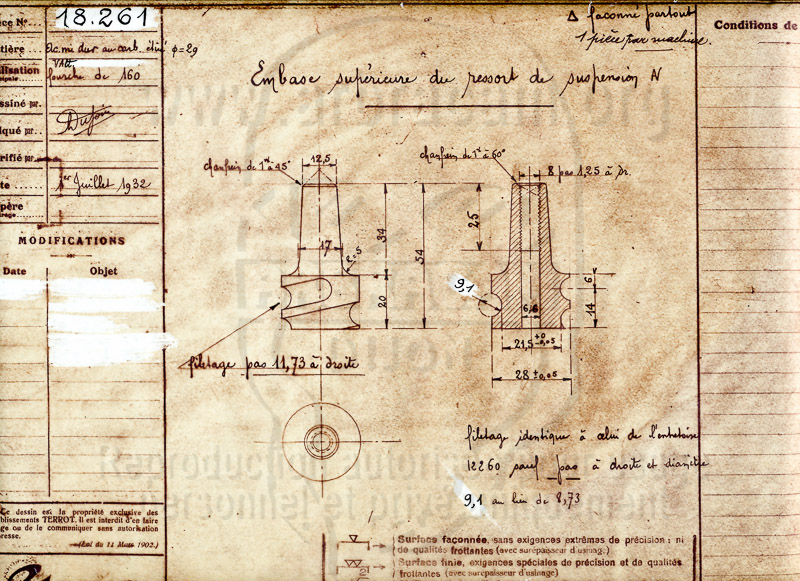 18.261
Δ façonné partout
1 pièce par machine.
Conditions de
ce N°
tière
Ac. mi dur au carb. étiré φ=29
lisation
fourche de 160
ssiné par.
Dufour
qué par.
rifié par.
te
1er Juillet 1932
père
MODIFICATIONS
Date
Objet
Embase supérieure du ressort de suspension N
chanfrein de 1m à 45°
12,5
17
2.5
34
54
20
filetage pas 11,73 à droite
chanfrein de 1m à 60°
8 pas 1,25 à Dr.
25
9,1
6,6
6
14
21,5 +0 -0,05
28 ±0,05
filetage identique à celui de l'entretoise
12260 sauf pas à droite et diamètre
9,1 au lieu de 8,73
Ce dessin est la propriété exclusive des
blissements TERROT. Il est interdit d'en faire
ge ou de le communiquer sans autorisation
presse.
(Loi du 11 Mars 1902.)
Surface façonnée, sans exigences extrêmes de précision : ni
de qualités frottantes (avec surépaisseur d'usinag.)
Surface finie, exigences spéciales de précision et de qualités
frottantes (avec surépaisseur d'usinage)